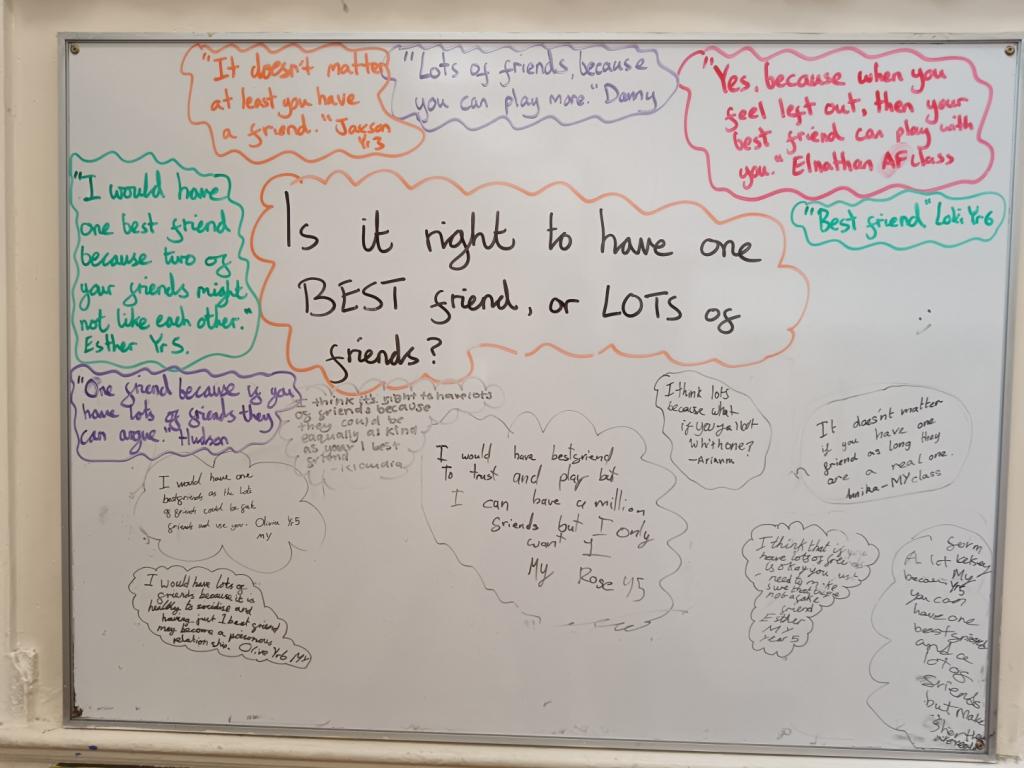 "It doesn't matter
at least you have
a friend." Jaxson
Yr3
"Lots of friends, because
you can play more." Danny
"Yes, because when you
feel left out, then your
best friend can play with
you." Elnathan AF class
"I would have
one best friend
because two of
your friends might
not like each other."
Esther Yr5.
Is it right to have one
BEST friend, or LOTS of
friends?
"Best friend" Loki Yr6
"One friend because if you
have lots of friends they
can argue." Hudson
I think it's right to have lots
of friends because
they could be
equally as kind
as your 1 best
friend
I would have bestfriend
to trust and play but
I can have a million
friends but I only
want 1
My Rose Y5
I think lots
because what
if you
which one?
-Arianna
It doesn't matter
if you have one
friend as long they
are a real one.
-MY class
I would have one
bestfriends as the lots
of friends could be fake
friends and use you. Olivia Yr5
MY
I would have lots of
friends because it is
healthy to socialise and
having just 1 best friend
may become a poisonous
relation. Olive Yr6 MY
I think that if
have lots of friends
is okay you
need to make
sure that
not a fake
friend
Esther
MY
year 5
A lot
because
you can
have one
best friends
and a
lot of
friends
but make